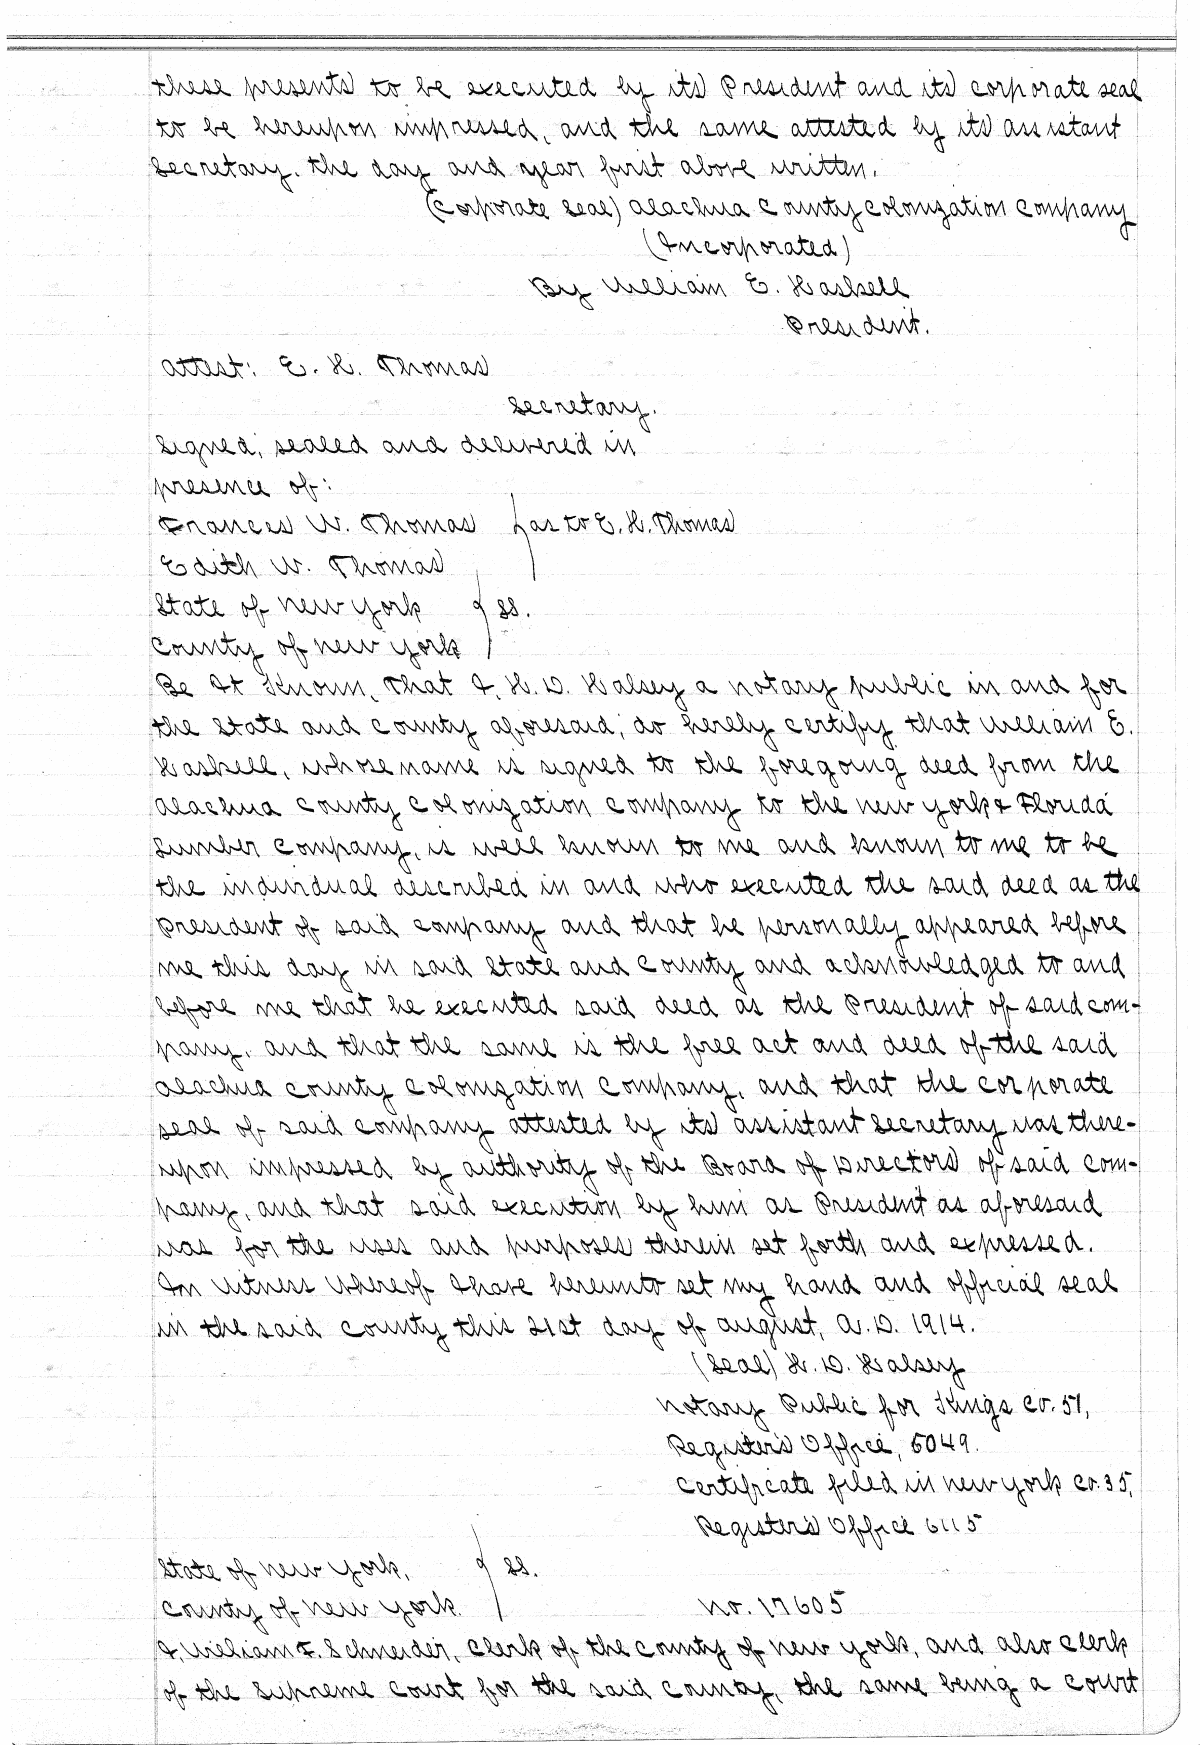 these presents to be executed by its President and its corporate seal
to be hereupon impressed, and the same attested by its assistant
Secretary. the day and year first above written.
(Corporate Seal) Alachua County Colonization Company
(Incorporated)
By William E. Haskell
President.
Attest: E. H. Thomas
Secretary.
Signed, sealed and delivered in
presence of:
Frances W. Thomas } as to E. H. Thomas
Edith W. Thomas
State of New York } SS.
County of New York
Be It Known, That I, H. D. Halsey a notary public in and for
the State and County aforesaid, do hereby certify that William E.
Haskell, whose name is signed to the foregoing deed from the
Alachua County Colonization Company to the New York & Florida
Lumber Company, is well known to me and known to me to be
the individual described in and who executed the said deed as the
President of said company and that he personally appeared before
me this day in said State and County and acknowledged to and
before me that he executed said deed as the President of said com-
pany, and that the same is the free act and deed of the said
Alachua County Colonization Company, and that the corporate
seal of said company attested by its assistant Secretary was there-
upon impressed by authority of the Board of Directors of said com-
pany, and that said execution by him as President as aforesaid
was for the uses and purposes therein set forth and expressed.
In Witness Whereof I have hereunto set my hand and official seal
in the said county this 21st day of August, A.D. 1914.
(Seal) H. D. Halsey
Notary Public for Kings Co. 51,
Register's Office, 5049.
Certificate filed in New York Co. 35,
Register's Office 6115
State of New York, } SS.
County of New York. No. 17605
I, William F. Schneider, Clerk of the County of New York, and also Clerk
of the Supreme Court for the said County, the same being a Court